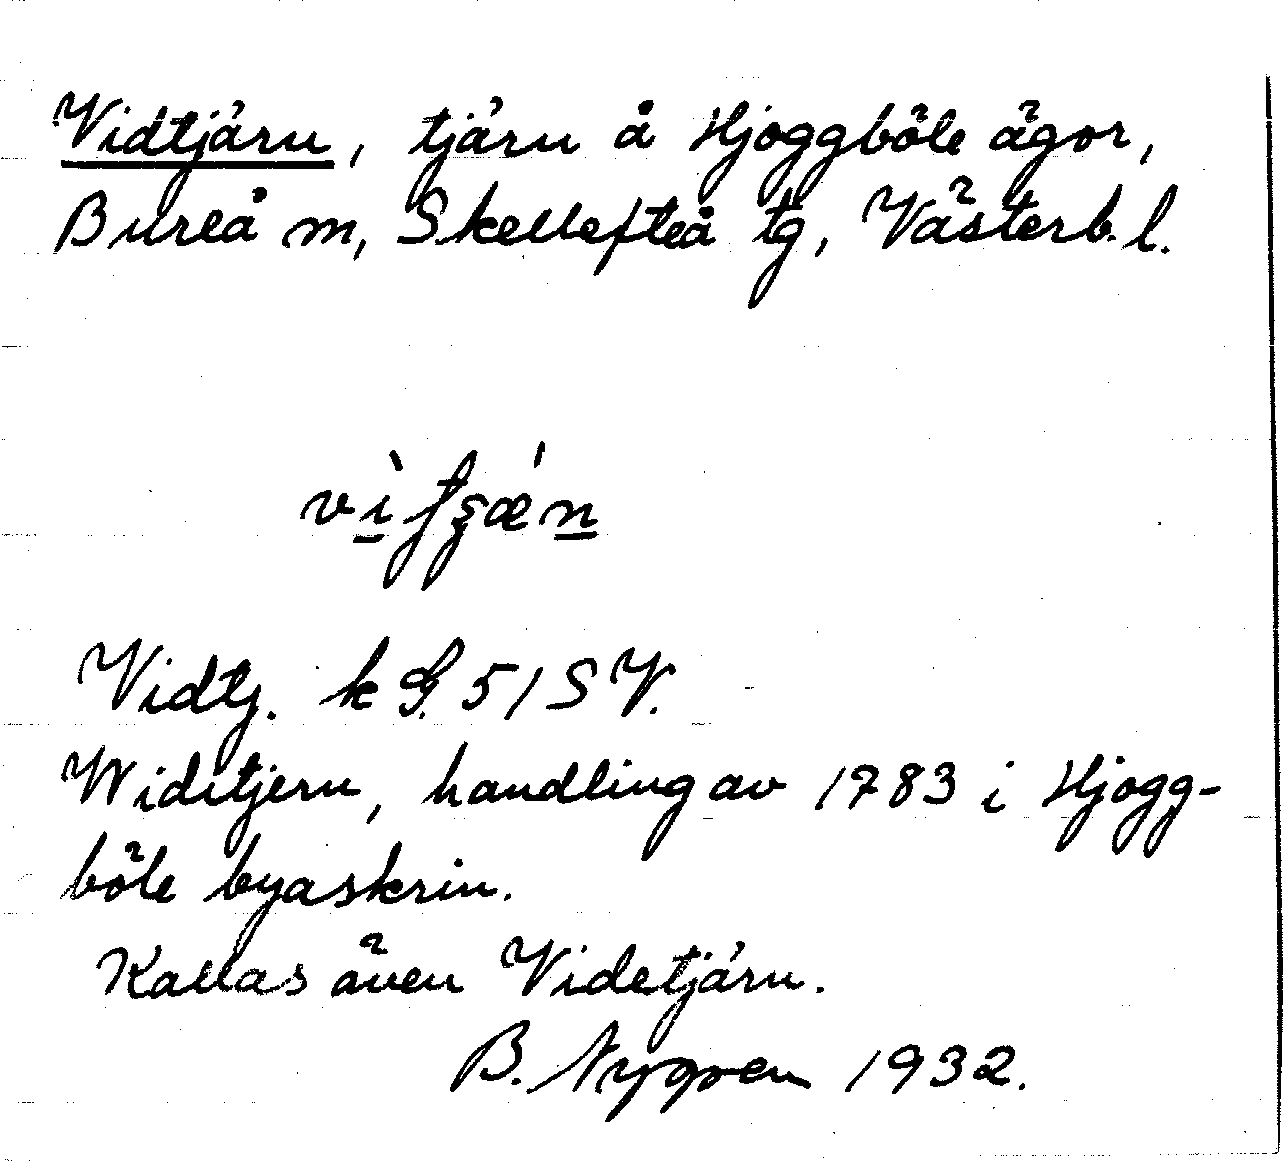 Vidtjärn, tjärn å Hjoggböle ägor,
Bureå m, Skellefteå tg, Västerb. l.
Vidtj. k G. 51 SV.
Widitjern, handling av 1783 i Hjogg-
böle byaskrin.
Kallas även Videtjärn.
B. Nygren 1932.